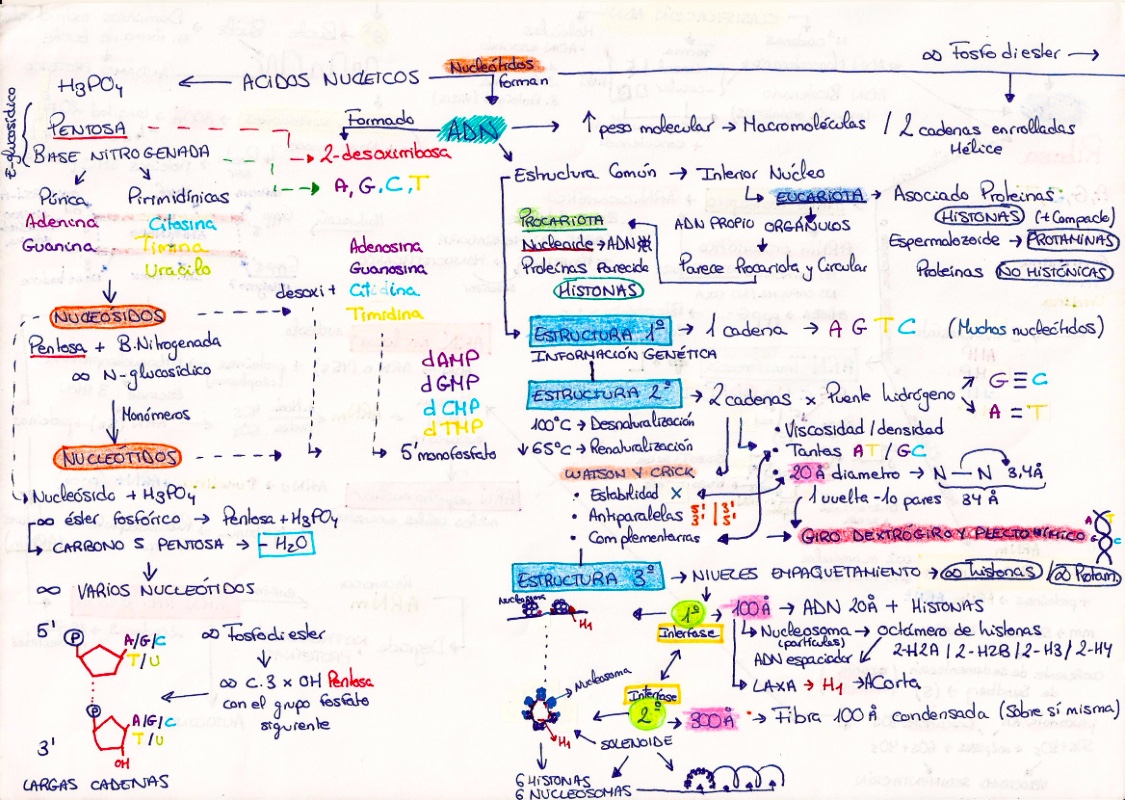 ∞ Fosfodiester →
H₃PO₄ ← ACIDOS NUCLEICOS
Nucleótidos
forman
∞ N-glucosídico
PENTOSA
BASE NITROGENADA
Púrica
Pirimidínicas
Adenina
Guanina
Citosina
Timina
Uracilo
Formado
ADN
2-desoxirribosa
A, G, C, T
→ ↑ peso molecular → Macromoléculas / 2 cadenas enrolladas
Hélice
Estructura Común → Interior Núcleo
↳ EUCARIOTA → Asociado Proteinas:
HISTONAS (+ Compacto)
Espermatozoide → PROTAMINAS
Proteinas NO HISTÓNICAS
ADN PROPIO ORGÁNULOS
Parece Procariota y Circular
PROCARIOTA
Nucleoide → ADN
Proteínas Parecida
HISTONAS
Adenosina
Guanosina
desoxi + Citidina
Timidina
NUCLEÓSIDOS
Pentosa + B. Nitrogenada
∞ N-glucosídico
Monómeros
NUCLEÓTIDOS
dAMP
dGMP
dCMP
dTMP
5' monofosfato
Nucleósido + H₃PO₄
∞ éster fosfórico → Pentosa + H₃PO₄
CARBONO 5 PENTOSA → - H₂O
∞ VARIOS NUCLEÓTIDOS
5'
P
A/G/C
T/U
P
A/G/C
T/U
3'
OH
LARGAS CADENAS
∞ Fosfodiester
∞ C.3 x OH Pentosa
con el grupo fosfato
siguiente
ESTRUCTURA 1º → 1 cadena → A G T C (Muchos nucleótidos)
INFORMACIÓN GENÉTICA
ESTRUCTURA 2º → 2 cadenas x Puente hidrógeno
G ≡ C
A = T
100ºC → Desnaturalización
↓ 65ºC → Renaturalización
• Viscosidad / densidad
• Tantas AT / GC
• 20 Å diametro → N — N 3,4 Å
1 vuelta - 10 pares 34 Å
WATSON Y CRICK
• Estabilidad x
• Antiparalelas 5' 3' | 3' 5'
• Complementarias
→ GIRO DEXTRÓGIRO Y PLECTONÍMICO
A T
G C
ESTRUCTURA 3º → NIVELES EMPAQUETAMIENTO → ∞ histonas / ∞ Protam.
Nucleosoma
H1
1º
Interfase
100 Å → ADN 20 Å + HISTONAS
Nucleosoma → octámero de histonas
(partículas)
ADN espaciador
2-H2A / 2-H2B / 2-H3 / 2-H4
LAXA → H1 → Acorta
Nucleosoma
H1
Interfase
2º → 300 Å → Fibra 100 Å condensada (Sobre sí misma)
SOLENOIDE
6 HISTONAS
6 NUCLEOSOMAS